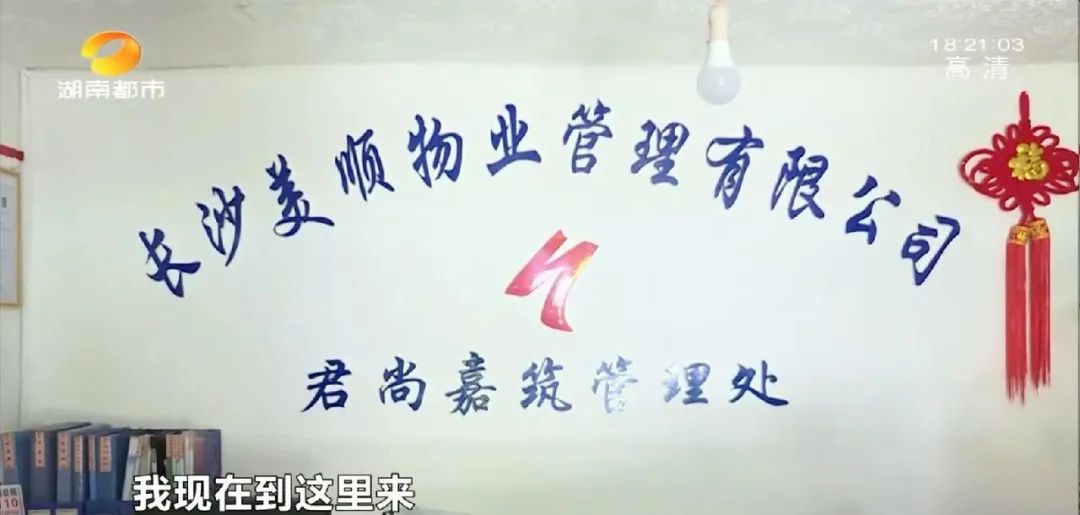 湖南都市
18:21:03
高清
长沙美顺物业管理有限公司
福
君尚嘉筑管理处
10
我现在到这里来